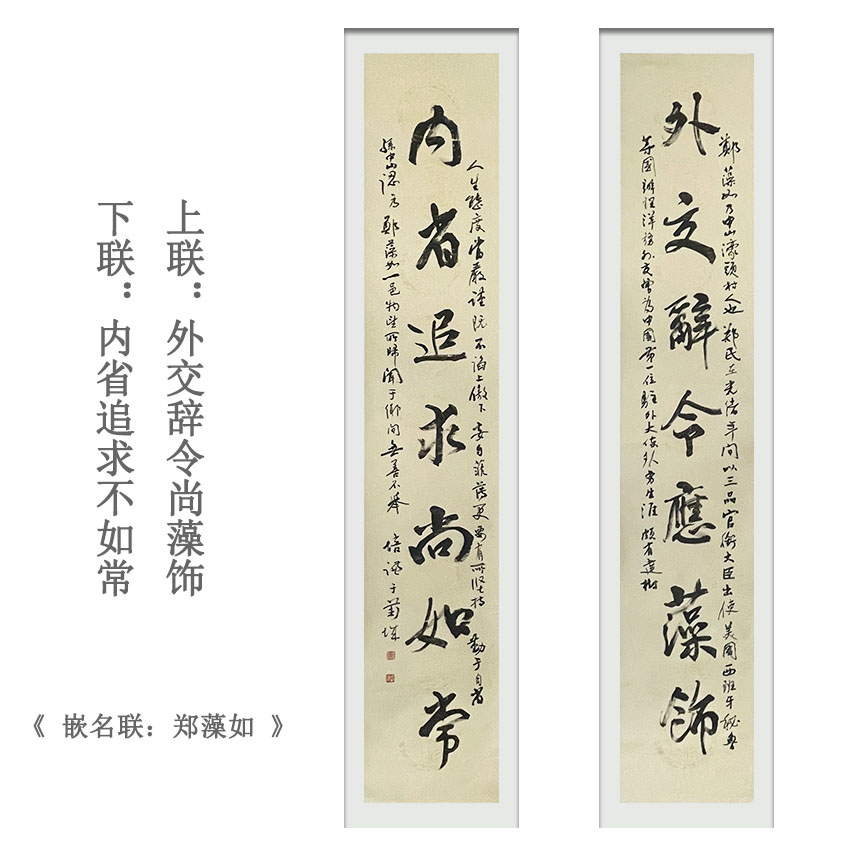 鄭藻如乃中山濠頭村人也 郑氏在光绪年间以三品官銜大臣出使美國西班牙秘魯
外交辭令應藻飾
等國辦理洋務外交曾為中國第一位駐外大使外交生涯 頗有建樹
人生態度當嚴謹既不諂上傲下妄自菲薄更要有所堅持 勤于自省
内省追求尚如常
孫中山認為鄭藻如一邑物望所歸聞于鄉间無善不舉
于菊城
上联：外交辞令尚藻饰
下联：内省追求不如常
《 嵌名联：郑藻如 》